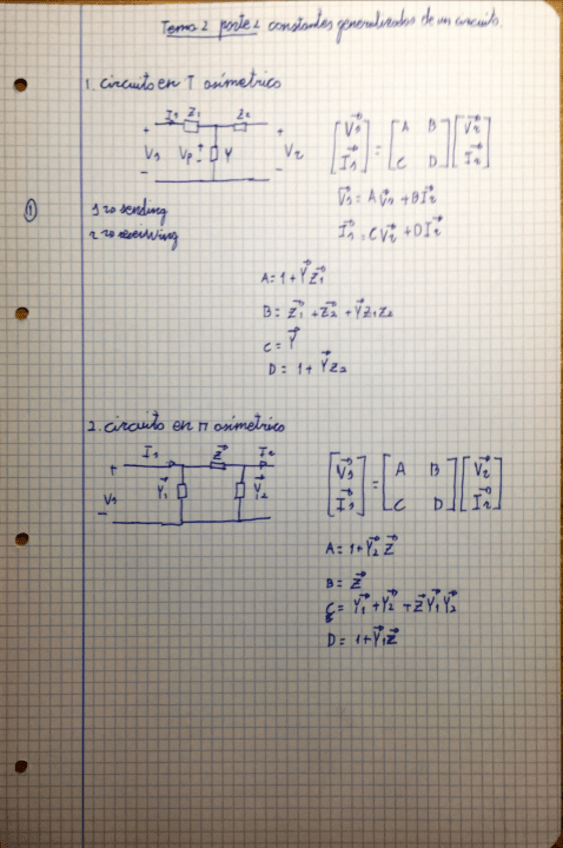 Tema 2 parte 2 constantes generalizadas de un circuito.
1. circuito en T asimetrico
I⃗s Z⃗1 Z⃗2
+ +
Vs Vp + Y Vr
- - -
[V⃗s I⃗s] = [A B C D] [V⃗r I⃗r]
V⃗s = A V⃗r + B I⃗r
I⃗s = C V⃗r + D I⃗r
①
s ⇝ sending
r ⇝ receiving
A = 1 + Y⃗ Z⃗1
B = Z⃗1 + Z⃗2 + Y⃗ Z1 Z2
C = Y⃗
D = 1 + Y⃗ Z2
2. circuito en π asimetrico
I⃗s Z⃗ I⃗r
+
Vs Y⃗1 Y⃗2
-
[V⃗s I⃗s] = [A B C D] [V⃗r I⃗r]
A = 1 + Y⃗2 Z⃗
B = Z⃗
C = Y⃗1 + Y⃗2 + Z⃗ Y⃗1 Y⃗2
D = 1 + Y⃗1 Z⃗